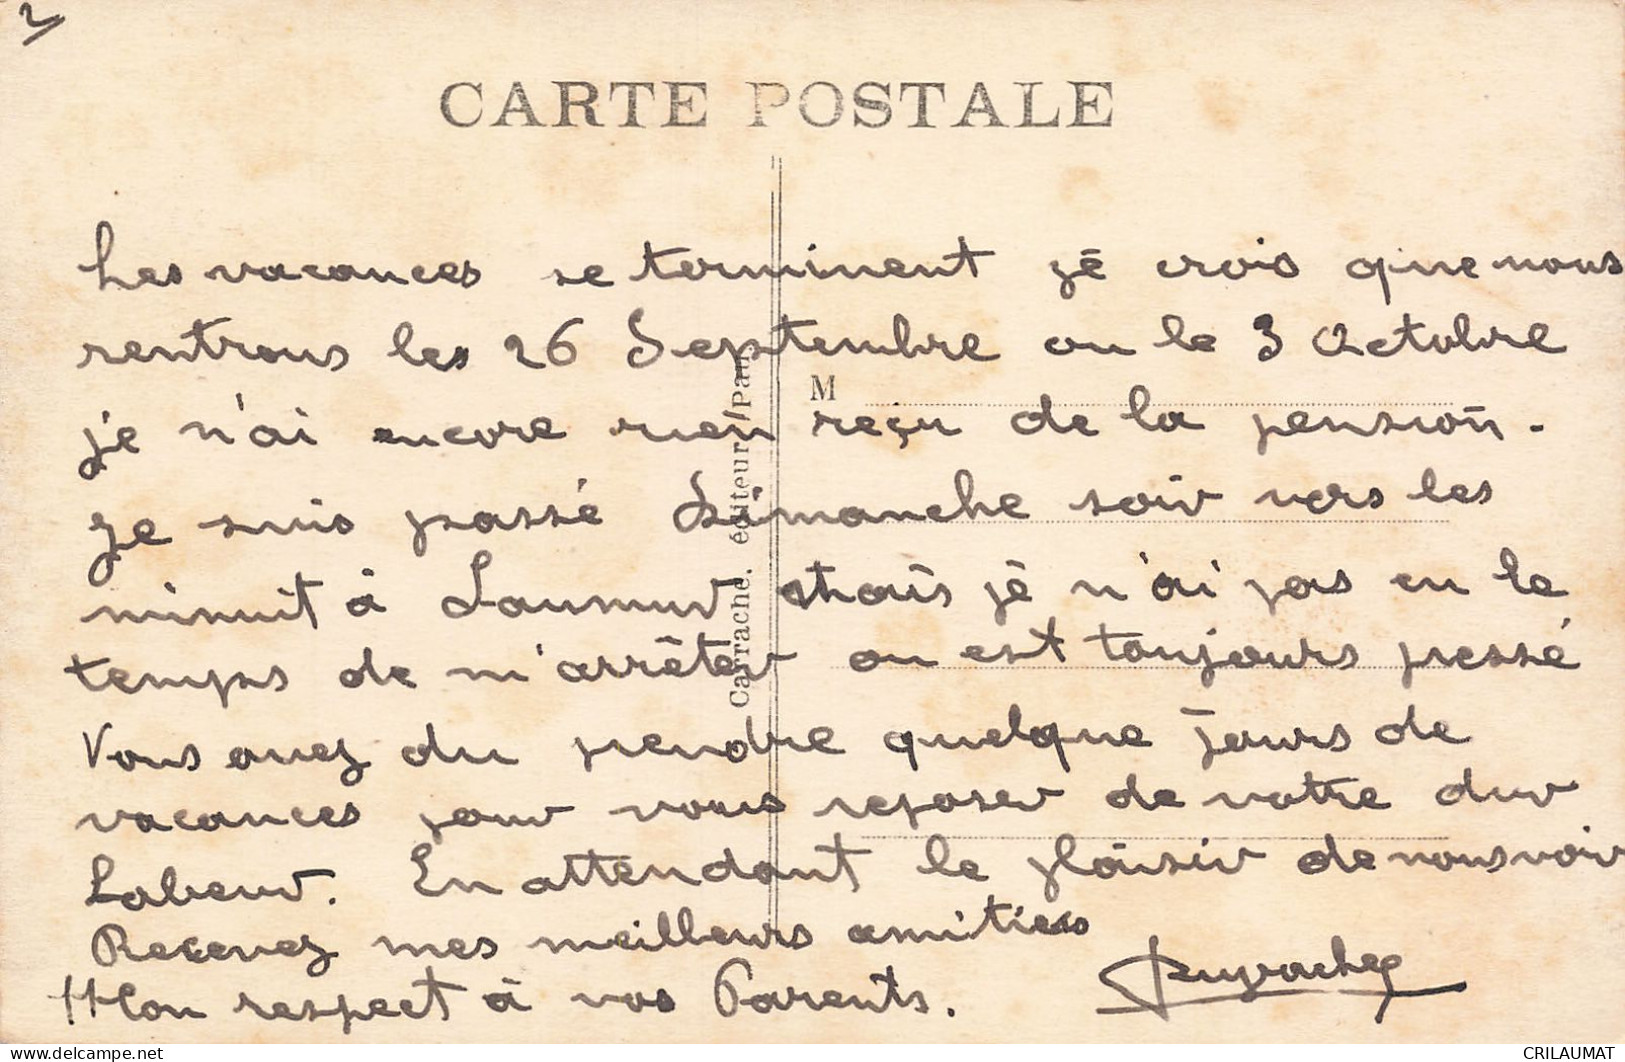 2
CARTE POSTALE
Les vacances se terminent je crois que nous
rentrons les 26 Septembre ou le 3 Octobre
M
je n'ai encore rien reçu de la pension.
Je suis passé Dimanche soir vers les
minuit à mais je n'ai pas eu le
temps de m'arrêter on est toujours pressé
Vous avez du prendre quelque jours de
vacances pour vous reposer de votre dur
Labeur. En attendant le plaisir de nous voir
Recevez mes meilleurs amitiés
Mon respect à vos Parents.
Carrache. éditeur, Pau.
CRILAUMAT